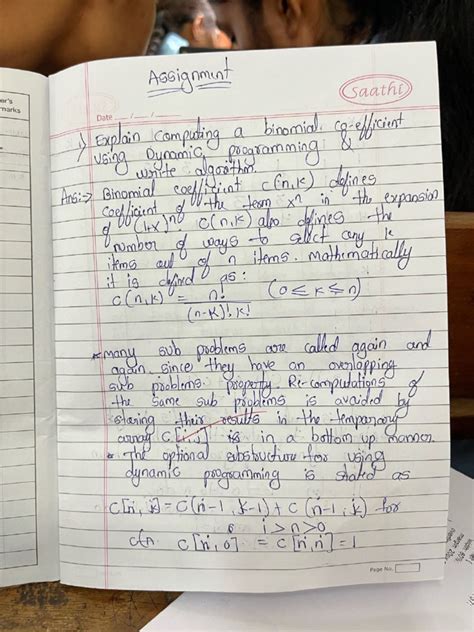 Assignment
Saathi
Date / /
1) Explain Computing a binomial co-efficient
using Dynamic programming &
write algorithm.
Ans:-> Binomial coefficient C(n,k) defines
coefficient of the term xⁿ in the expansion
of (1+x)ⁿ. C(n,k) also defines the
number of ways to select any k
items out of n items. mathematically
it is defined as:
C(n,k) = n! / (n-k)! k! (0 ≤ k ≤ n)
* many sub problems are called again and
again, since they have an overlapping
sub problems property. Re-computations of
the same sub problems is avoided by
storing their results in the temporary
array C[i,j] is in a bottom up manner.
* The optional substructure for using
dynamic programming is stated as
C[n, k] = C(n-1, k-1) + C(n-1, k) for
i > n > 0
C[n, 0] = C[n, n] = 1
Page No.